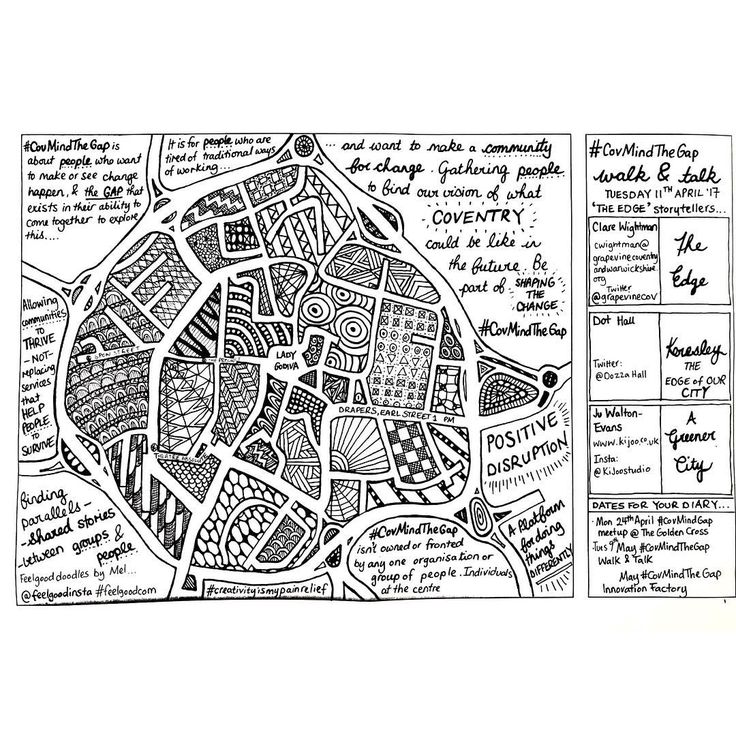 #CovMindTheGap is
about people who want
to make or see change
happen, & the GAP that
exists in their ability to
come together to explore
this....
It is for people who are
tired of traditional ways
of working...
... and want to make a community
for change. Gathering people
to find our vision of what
COVENTRY
could be like in
the future. Be
part of SHAPING
THE
CHANGE
#CovMindTheGap
Allowing
communities
to
THRIVE
- NOT -
replacing
services
that
HELP
PEOPLE
to
SURVIVE
LADY
GODIVA
DRAPERS, EARL STREET 1 PM
POSITIVE
DISRUPTION
A Platform
for doing
things
DIFFERENTLY
finding
parallels -
- shared stories
- between groups &
people
Feelgooddoodles by Mel...
@feelgoodinsta #feelgoodcom
#creativityismypainrelief
#CovMindTheGap
isn't owned or fronted
by any one organisation or
group of people. Individuals
at the centre
#CovMindTheGap
walk & talk
TUESDAY 11TH APRIL '17
'THE EDGE' storytellers...
Clare Wightman
cwightman@
grapevinecoventry
andwarwickshire.
org
Twitter
@grapevinecov
The
Edge
Dot Hall
Twitter:
@Dozza Hall
Keresley
THE
EDGE of OUR
CITY
Ju Walton-
Evans
www.kijoo.co.uk
Insta:
@KiJoostudio
A
Greener
City
DATES FOR YOUR DIARY...
Mon 24th April #CovMindGap
meetup @ The Golden Cross
Tues 9th May #CovMindTheGap
Walk & Talk
May #CovMindTheGap
Innovation Factory